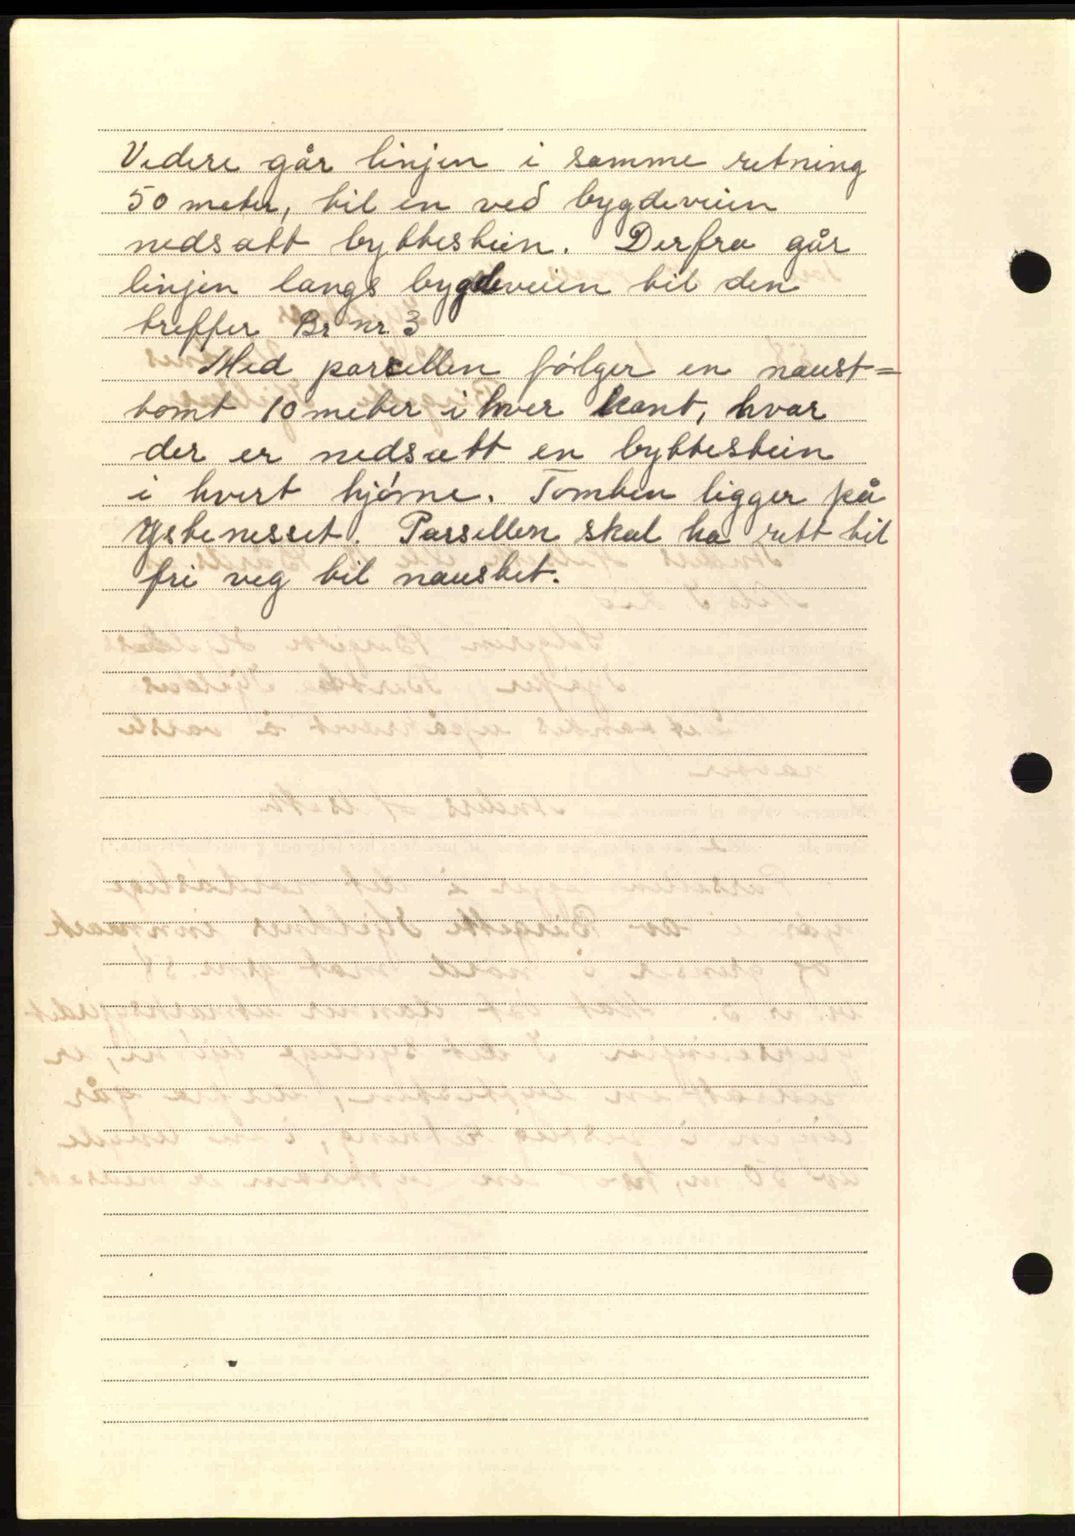 Videre går linjen i samme retning
50 meter, til en ved bygdeveien
nedsatt byttestein. Derfra går
linjen langs bygdeveien til den
treffer Br nr. 3
Med parsellen følger en naust=
tomt 10 meter i hver kant, hvor
der er nedsatt en byttestein
i hvert hjørne. Tomten ligger på
Ystenesset. Parsellen skal ha rett til
fri veg til naustet.